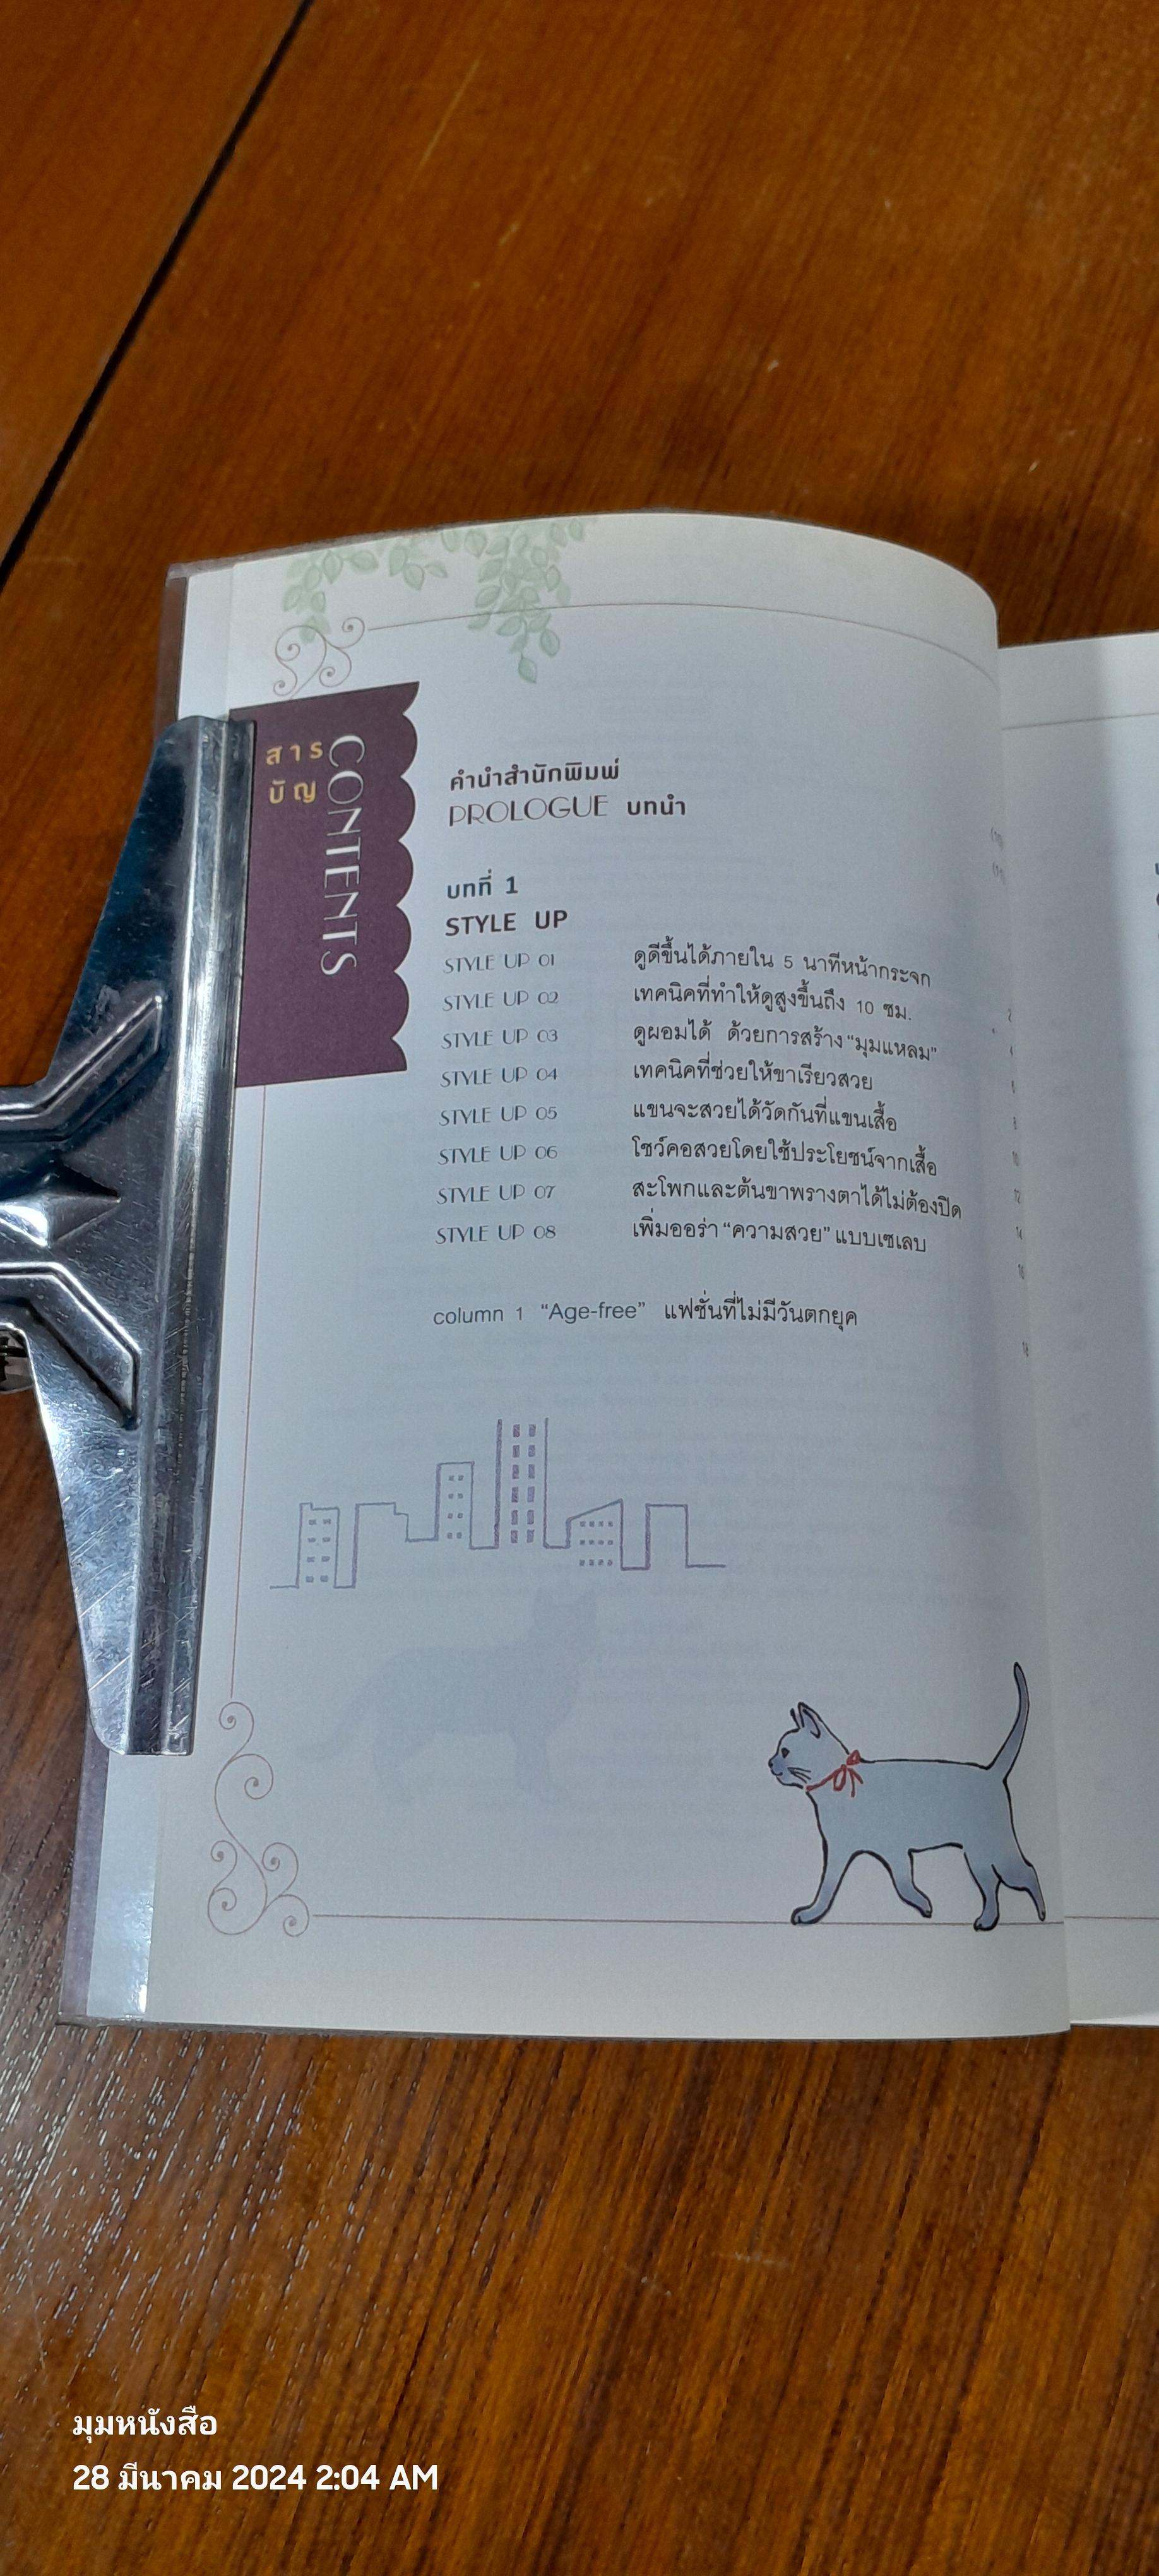 สาร
บัญ
CONTENTS
คำนำสำนักพิมพ์
PROLOGUE บทนำ
บทที่ 1
STYLE UP
STYLE UP 01 ดูดีขึ้นได้ภายใน 5 นาทีหน้ากระจก
STYLE UP 02 เทคนิคที่ทำให้ดูสูงขึ้นถึง 10 ซม.
STYLE UP 03 ดูผอมได้ ด้วยการสร้าง “มุมแหลม”
STYLE UP 04 เทคนิคที่ช่วยให้ขาเรียวสวย
STYLE UP 05 แขนจะสวยได้วัดกันที่แขนเสื้อ
STYLE UP 06 โชว์คอสวยโดยใช้ประโยชน์จากเสื้อ
STYLE UP 07 สะโพกและต้นขาพรางตาได้ไม่ต้องปิด
STYLE UP 08 เพิ่มออร่า “ความสวย” แบบเซเลบ
column 1 “Age-free” แฟชั่นที่ไม่มีวันตกยุค
มุมหนังสือ
28 มีนาคม 2024 2:04 AM